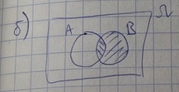 б) A B Ω